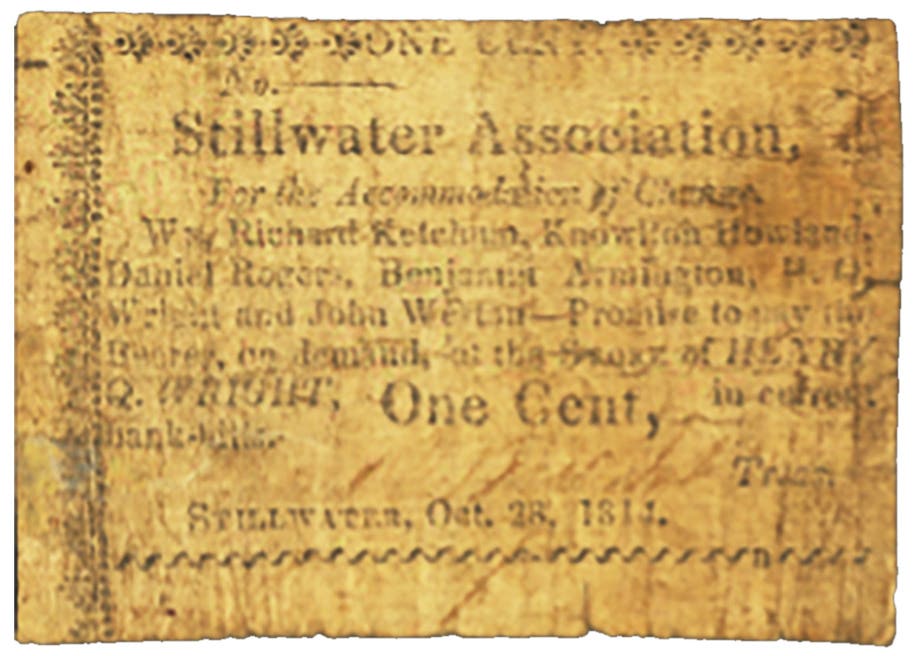 ONE CENT.
No.
Stillwater Association,
For the Accommodation of Change.
Wm. Richard Ketchum, Knowlton Howland,
Daniel Rogers, Benjamin Armington, H. Q.
Wright and John Weston—Promise to pay the
Bearer, on demand, at the store of HENRY
Q. WRIGHT, One Cent, in current
bank-bills.
Treas.
STILLWATER, Oct. 28, 1814.